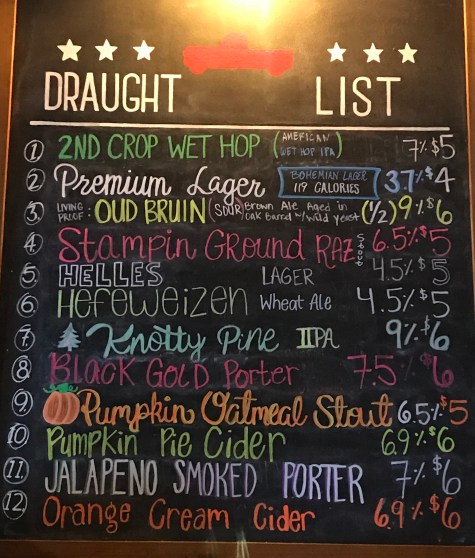 DRAUGHT LIST
1 2ND CROP WET HOP (AMERICAN WET HOP IPA) 7% $5
2 Premium Lager BOHEMIAN LAGER 119 CALORIES 3.7% $4
3 LIVING PROOF: OUD BRUIN (SOUR) Brown Ale Aged in Oak Barrel w/ Wild yeast (1/2) 9% $6
4 Stampin Ground RAZ 6.5% $5
5 HELLES LAGER 4.5% $5
6 Hefeweizen Wheat Ale 4.5% $5
7 Knotty Pine IIPA 9% $6
8 Black Gold Porter 7.5% $6
9 Pumpkin Oatmeal Stout 6.5% $5
10 Pumpkin Pie Cider 6.9% $6
11 JALAPENO SMOKED PORTER 7% $6
12 Orange Cream Cider 6.9% $6